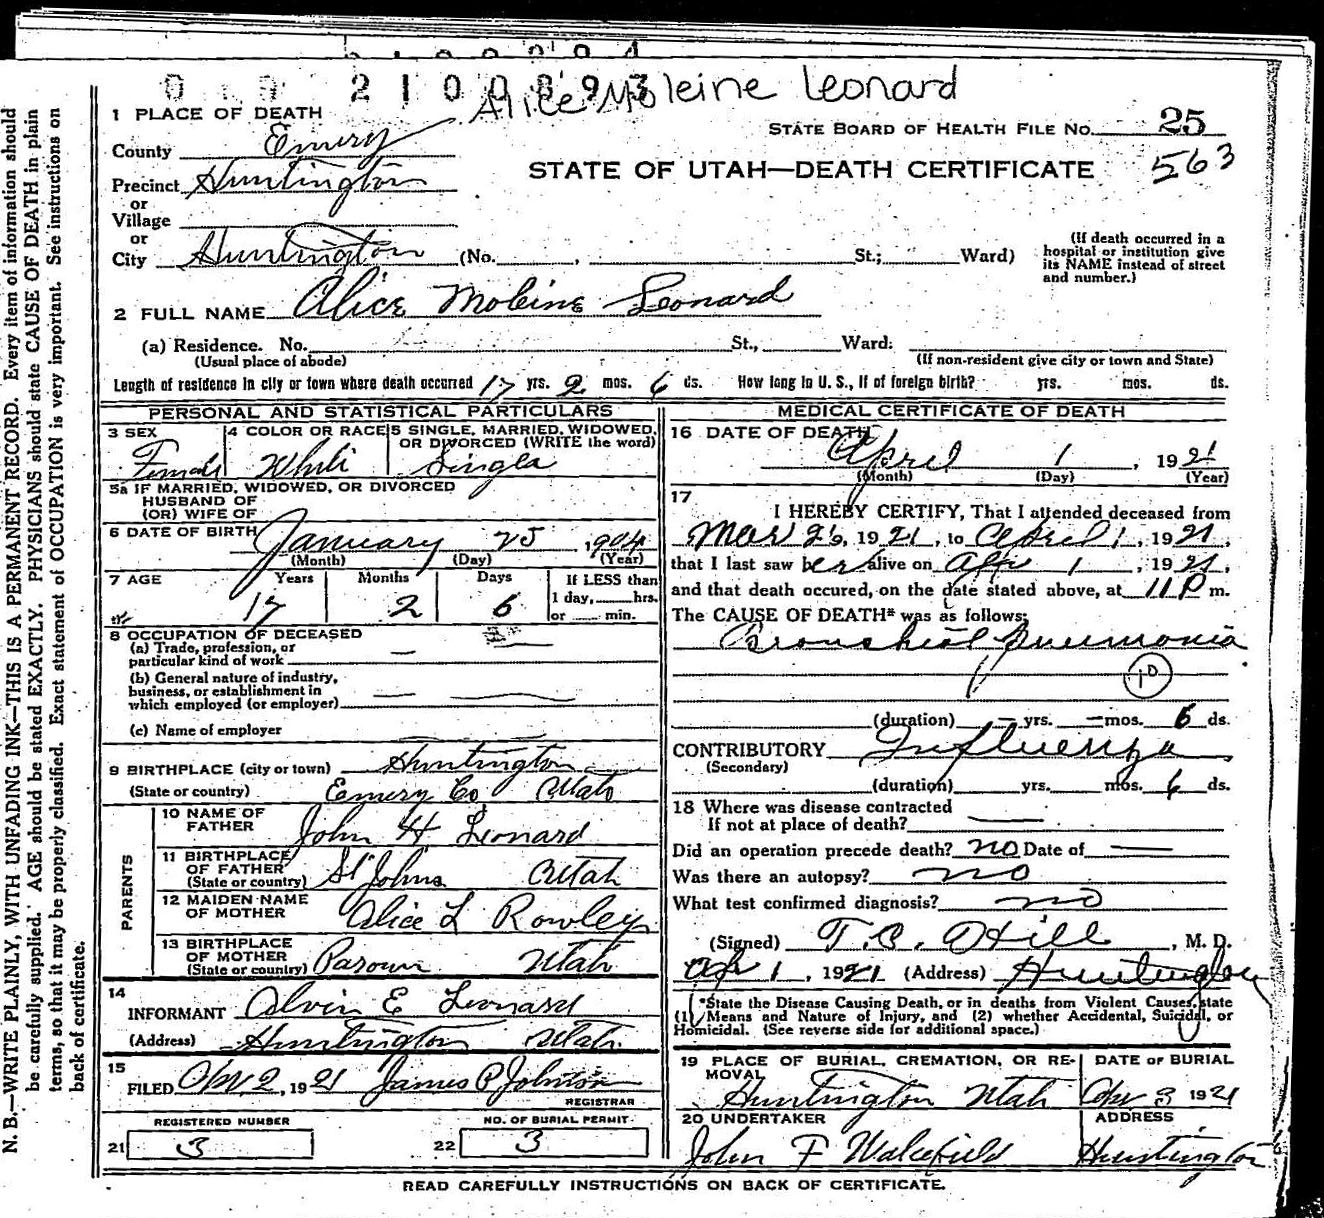 2100893
Alice Moleine Leonard
1 PLACE OF DEATH
STATE BOARD OF HEALTH FILE NO. 25
563
County Emery
STATE OF UTAH—DEATH CERTIFICATE
Precinct Huntington
or
Village
or
City Huntington (No. , St.; Ward)
(If death occurred in a
hospital or institution give
its NAME instead of street
and number.)
2 FULL NAME Alice Moleine Leonard
(a) Residence. No. St., Ward:
(Usual place of abode) (If non-resident give city or town and State)
Length of residence in city or town where death occurred 17 yrs. 2 mos. 6 ds. How long in U. S., if of foreign birth? yrs. mos. ds.
PERSONAL AND STATISTICAL PARTICULARS
3 SEX Female
4 COLOR OR RACE White
5 SINGLE, MARRIED, WIDOWED,
OR DIVORCED (WRITE the word)
Single
5a IF MARRIED, WIDOWED, OR DIVORCED
HUSBAND OF
(OR) WIFE OF
6 DATE OF BIRTH January 25, 1904
(Month) (Day) (Year)
7 AGE Years Months Days If LESS than
17 2 6 1 day, hrs.
or min.
8 OCCUPATION OF DECEASED
(a) Trade, profession, or
particular kind of work —
(b) General nature of industry,
business, or establishment in
which employed (or employer)
(c) Name of employer
9 BIRTHPLACE (city or town) Huntington
(State or country) Emery Co Utah
PARENTS
10 NAME OF
FATHER John H Leonard
11 BIRTHPLACE
OF FATHER
(State or country) St Johns Utah
12 MAIDEN NAME
OF MOTHER Alice L Rowley
13 BIRTHPLACE
OF MOTHER
(State or country) Parown Utah
14
INFORMANT Alvin E Leonard
(Address) Huntington Utah.
15
FILED Apr 2, 1921 James P Johnson
REGISTRAR
REGISTERED NUMBER NO. OF BURIAL PERMIT
21 3 22 3
MEDICAL CERTIFICATE OF DEATH
16 DATE OF DEATH
April 1, 1921
(Month) (Day) (Year)
17
I HEREBY CERTIFY, That I attended deceased from
Mar 26, 1921, to April 1, 1921,
that I last saw her alive on Apr 1, 1921,
and that death occured, on the date stated above, at 11 P m.
The CAUSE OF DEATH* was as follows:
Bronchial Pneumonia
10
(duration) — yrs. — mos. 6 ds.
CONTRIBUTORY Influenza
(Secondary)
(duration) yrs. mos. 6 ds.
18 Where was disease contracted
If not at place of death? —
Did an operation precede death? no Date of —
Was there an autopsy? no
What test confirmed diagnosis? no
(Signed) T.C. Hill, M. D.
Apr 1, 1921 (Address) Huntington
*State the Disease Causing Death, or in deaths from Violent Causes, state
(1) Means and Nature of Injury, and (2) whether Accidental, Suicidal, or
Homicidal. (See reverse side for additional space.)
19 PLACE OF BURIAL, CREMATION, OR RE-
MOVAL
Huntington Utah
DATE OF BURIAL
Apr 3 1921
20 UNDERTAKER
John F Wakefield
ADDRESS
Huntington
READ CAREFULLY INSTRUCTIONS ON BACK OF CERTIFICATE.
N. B.—WRITE PLAINLY, WITH UNFADING INK—THIS IS A PERMANENT RECORD. Every item of information should
be carefully supplied. AGE should be stated EXACTLY. PHYSICIANS should state CAUSE OF DEATH in plain
terms, so that it may be properly classified. Exact statement of OCCUPATION is very important. See instructions on
back of certificate.